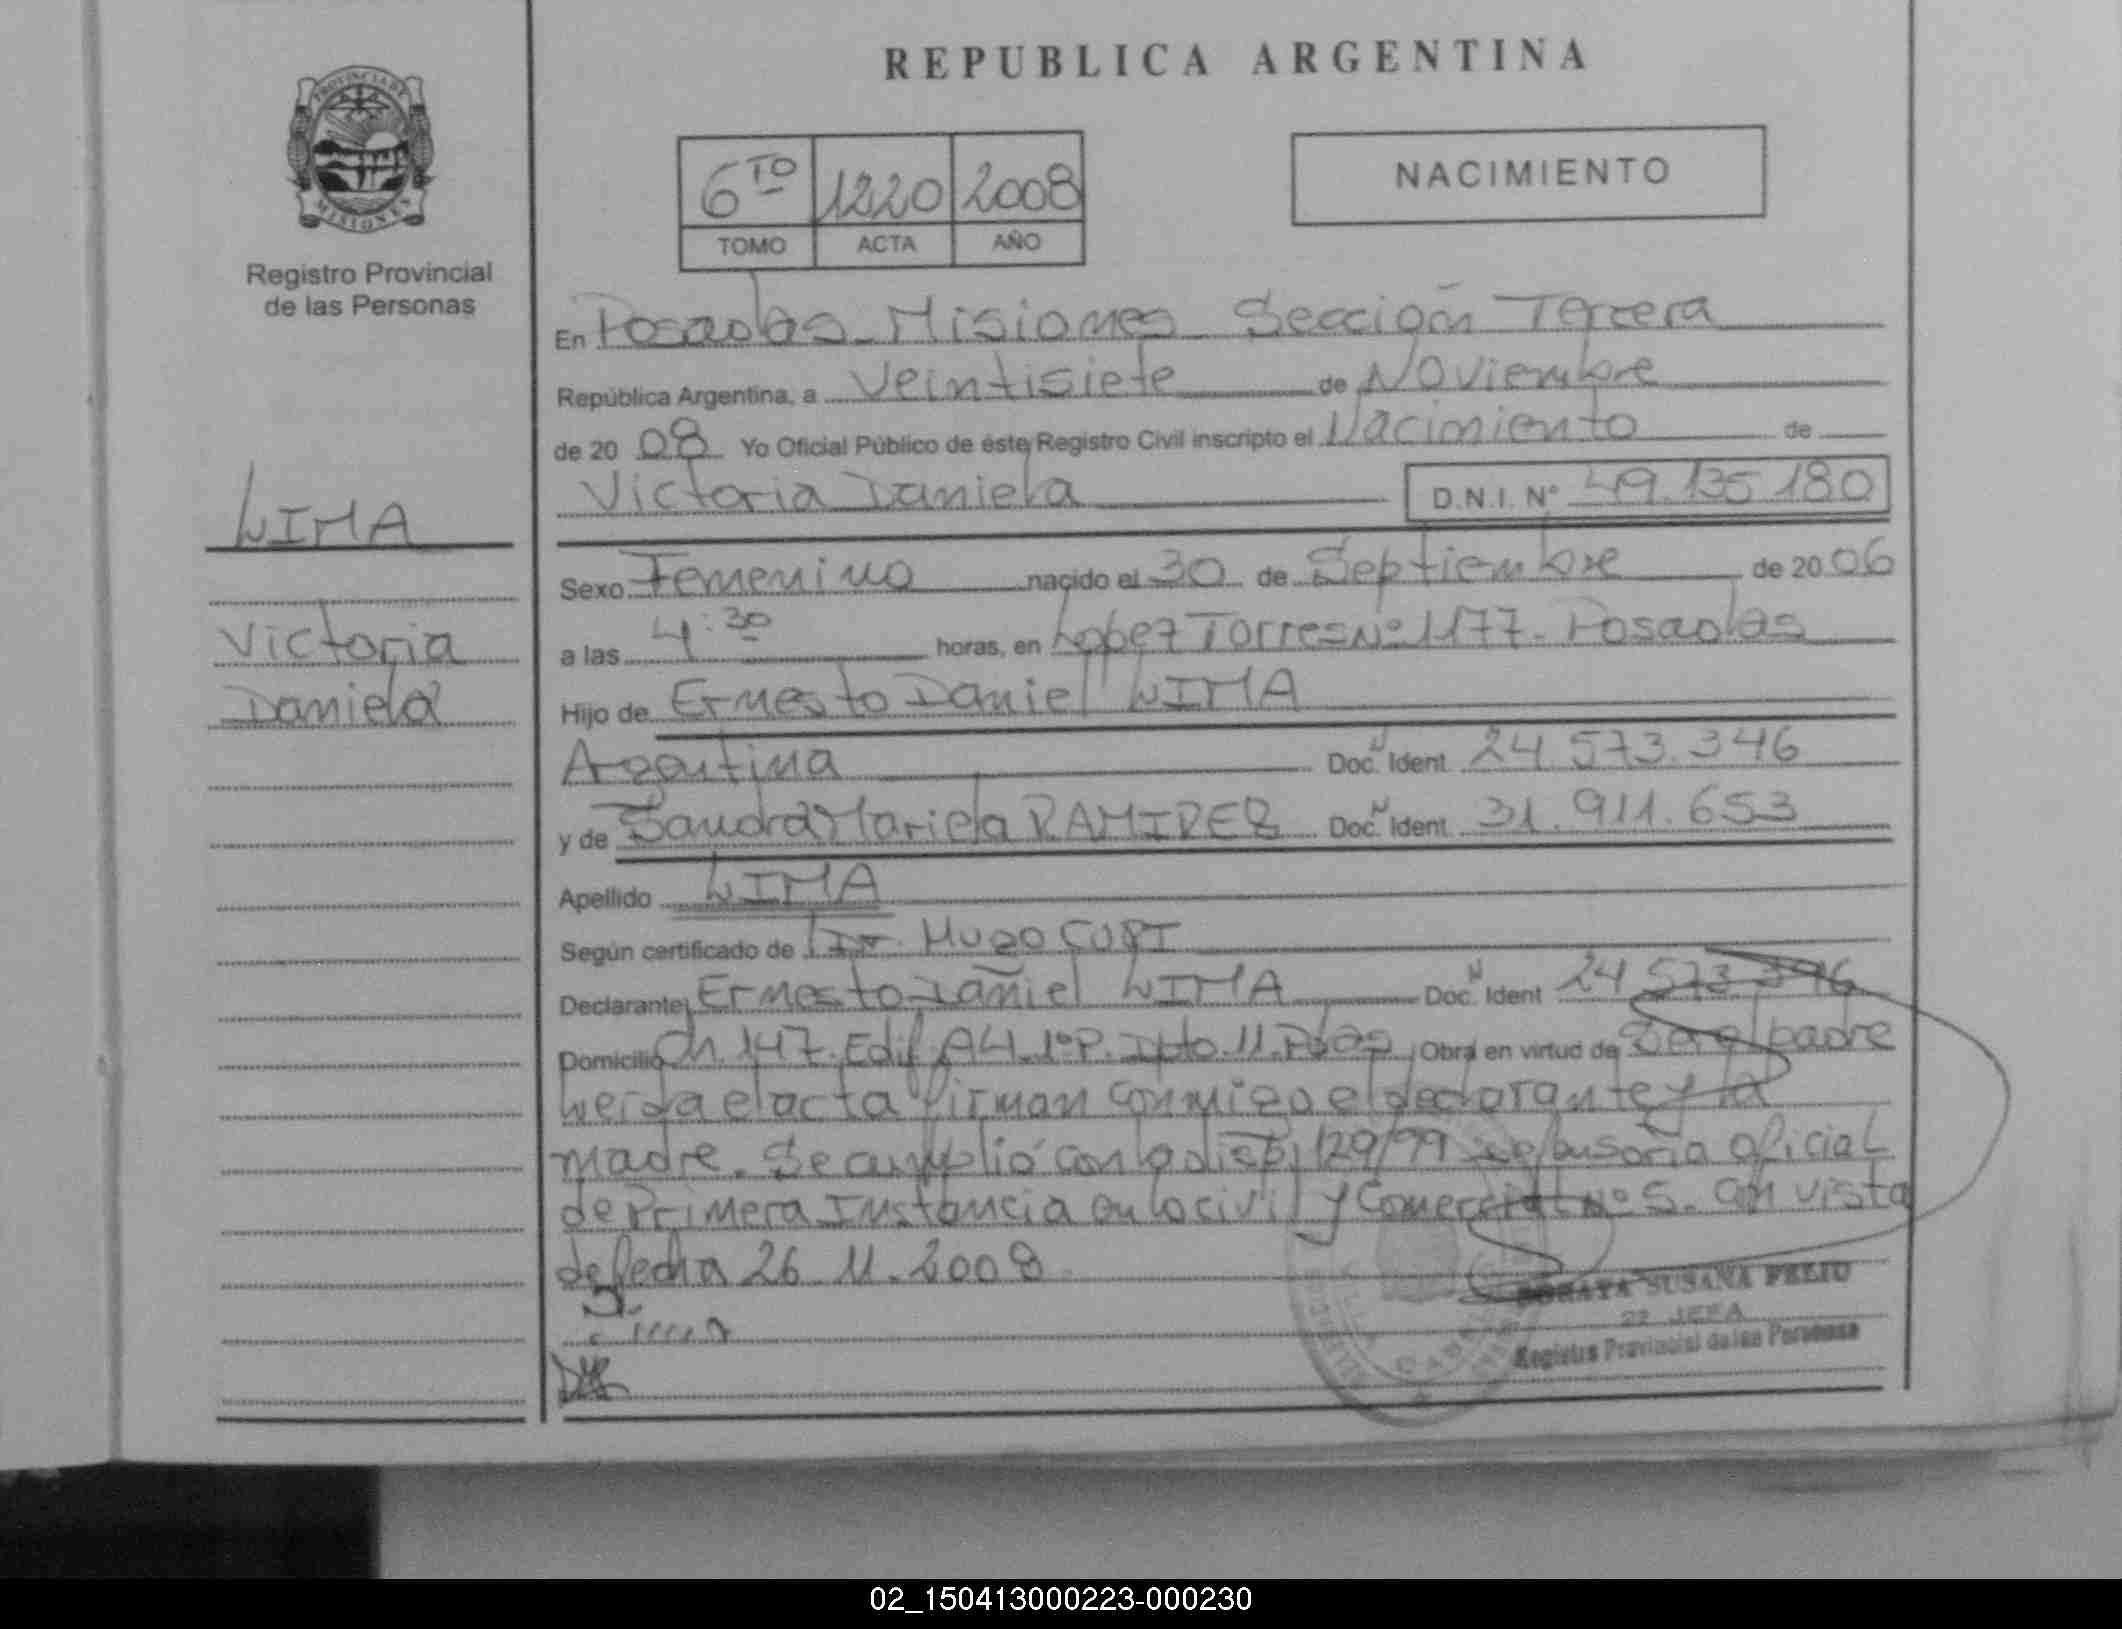 REPUBLICA ARGENTINA
PROVINCIA DE
MISIONES
Registro Provincial
de las Personas
6TO 1220 2008
TOMO ACTA AÑO
NACIMIENTO
LIMA
Victoria
Daniela
En Posadas - Misiones Sección Tercera
República Argentina, a Veintisiete de Noviembre
de 20 08 Yo Oficial Público de éste Registro Civil inscripto el Nacimiento de
Victoria Daniela D.N.I. Nº 49.135.180
Sexo Femenino nacido el 30 de Septiembre de 20 06
a las 4:30 horas, en Lopez Torres Nº 1177. Posadas
Hijo de Ernesto Daniel LIMA
Argentina Doc. Ident. 24.573.346
y de Sandra Mariela RAMIREZ Doc. Ident. 31.911.653
Apellido LIMA
Según certificado de Dr. Hugo CURI
Declarante Ernesto Daniel LIMA Doc. Ident 24 573 346
Domicilio Ch 147. Edif A4 1º P. Dpto. 11. Pdas Obra en virtud de Ser el padre
Leida el acta firman conmigo el declarante y la
madre. Se cumplió con la disp. 129/99 Defensoria Oficial
de Primera Instancia en lo civil y Comercial Nº 5. Con vista
de fecha 26.11.2008
SORAYA SUSANA FELIU
JEFA
Registro Provincial de las Personas
02_150413000223-000230